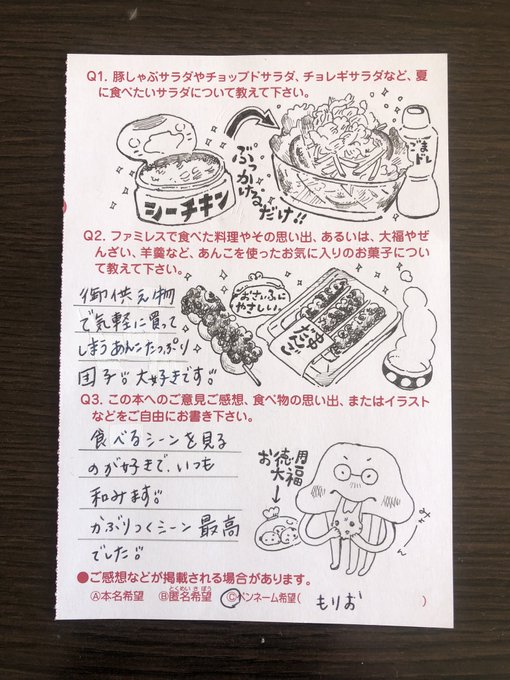 Q1. 豚しゃぶサラダやチョップドサラダ、チョレギサラダなど、夏
に食べたいサラダについて教えて下さい。
シーチキン
ぶっかけるだけ!!
ごまドレ
Q2. ファミレスで食べた料理やその思い出、あるいは、大福やぜ
んざい、羊羹など、あんこを使ったお気に入りのお菓子につい
て教えて下さい。
御供え物
で気軽に買って
しまうあんこたっぷり
団子!!大好きです!!
おさいふに
やさしい。
だんご
Q3. この本へのご意見ご感想、食べ物の思い出、またはイラスト
などをご自由にお書き下さい。
食べるシーンを見る
のが好きで、いつも
和みます!!
かぶりつくシーン最高
でした!!
お徳用
大福
●ご感想などが掲載される場合があります。
Ⓐ本名希望 Ⓑ匿名希望 Ⓒペンネーム希望( もりお )
とくめい きぼう